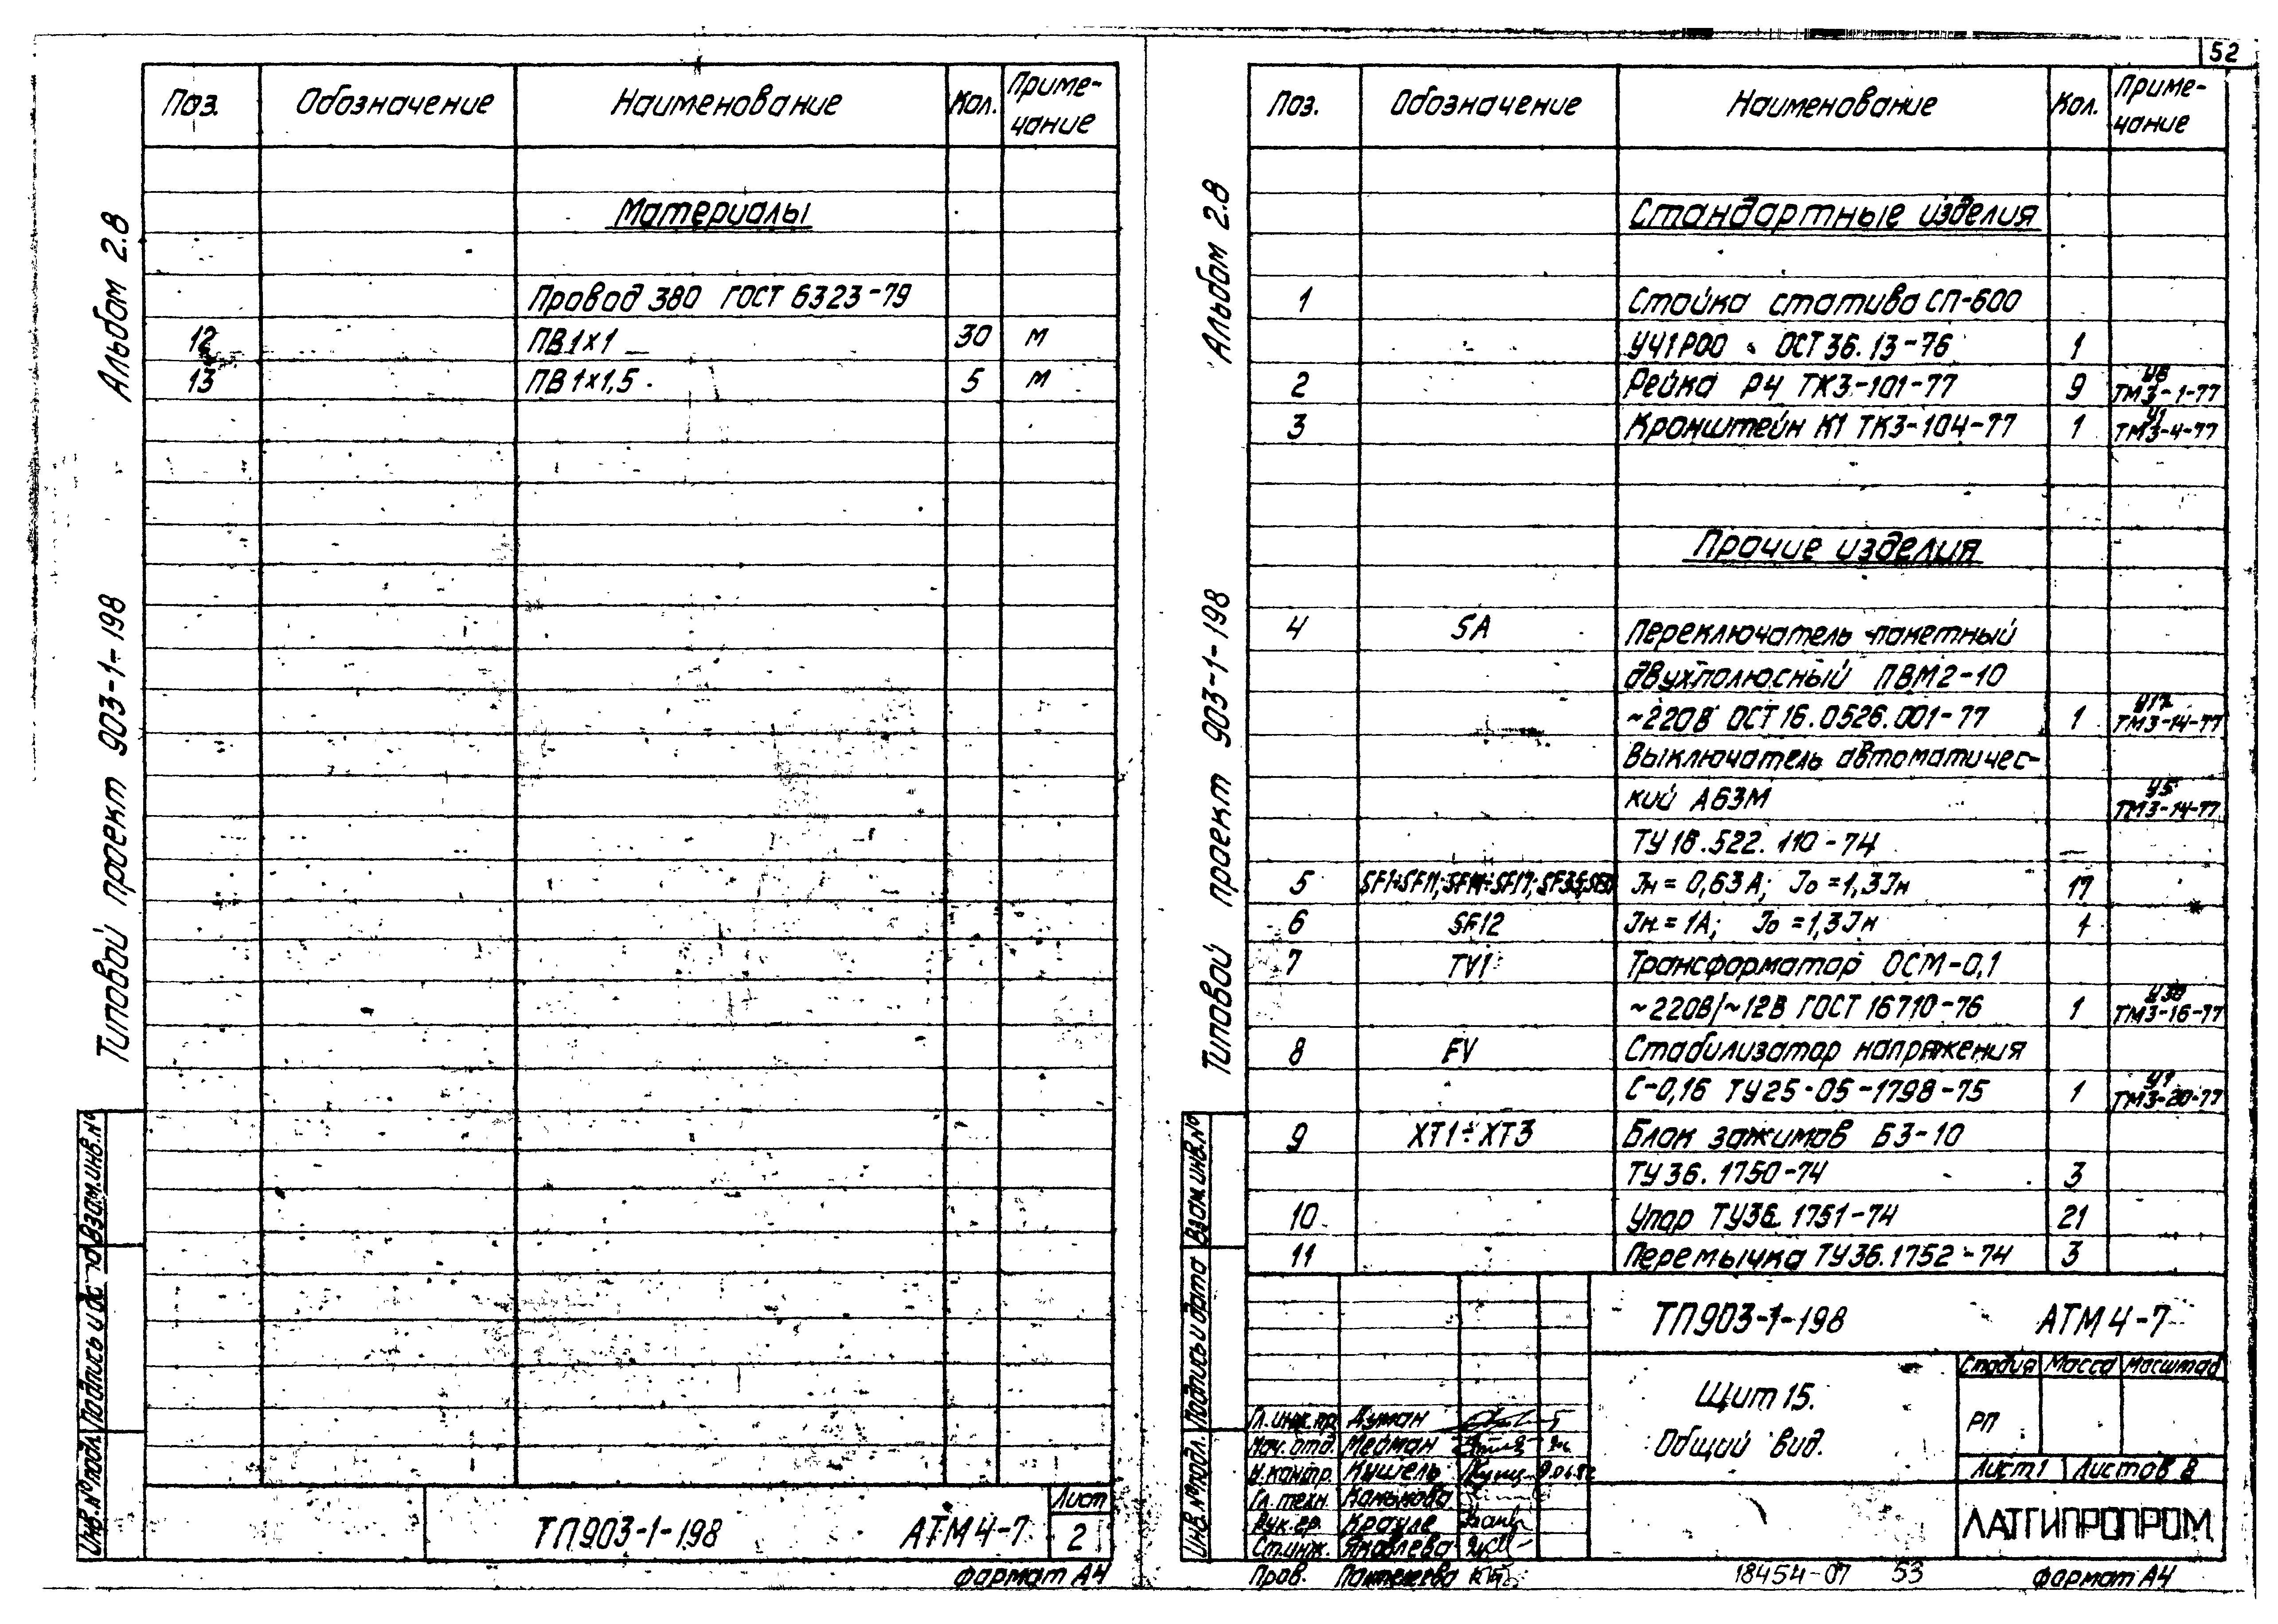 52
Альбом 2.8
Типовой проект 903-1-198
Поз. Обозначение Наименование Кол. Приме-
чание
Материалы
Провод 380 ГОСТ 6323-79
12 ПВ 1х1 30 м
13 ПВ 1х1,5 5 м
Взам.инв.№
Инв.№подл. Подпись и
ТП903-1-198 АТМ4-7
Лист
2
Формат А4
Альбом 2.8
Типовой проект 903-1-198
Поз. Обозначение Наименование Кол. Приме-
чание
Стандартные изделия
1 Стойка статива СП-600
УЧ1Р00 ОСТ 36.13-76 1
2 Рейка Р4 ТК3-101-77 9 ТМ3-1-77
3 Кронштейн К1 ТК3-104-77 1 У1 ТМ3-4-77
Прочие изделия
4 SA Переключатель пакетный
двухполюсный ПВМ2-10
~220В ОСТ 16.0526.001-77 1 У17 ТМ3-14-77
Выключатель автоматичес-
кий А63М У5 ТМ3-14-77
ТУ 16.522.110-74
5 Jн = 0,63А; Jо = 1,3Jн 17
6 SF12 Jн = 1А; Jо = 1,3Jн 1
7 TV1 Трансформатор ОСМ-0,1
~220В/~12В ГОСТ 16710-76 1 У30 ТМ3-16-77
8 FV Стабилизатор напряжения
С-0,16 ТУ25-05-1798-75 1 ТМ3-20-77
9 ХТ1÷ХТ3 Блок зажимов БЗ-10
ТУ 36.1750-74 3
10 Упор ТУ36.1751-74 21
11 Перемычка ТУ36.1752-74 3
Взам.инв.№
Подпись и дата
Инв.№подл.
ТП903-1-198 АТМ4-7
Щит 15.
Общий вид.
Стадия Масса Масштаб
РП
Лист 1 Листов 8
ЛАТГИПРОПРОМ
Гл.инж.пр. Думан
Нач.отд. Мейман
Н.контр. Кушель
Гл.техн. Конькова
Рук.гр. Крауле
Ст.инж. Яковлева
Пров. Пантелеева
18454-07 53
Формат А4